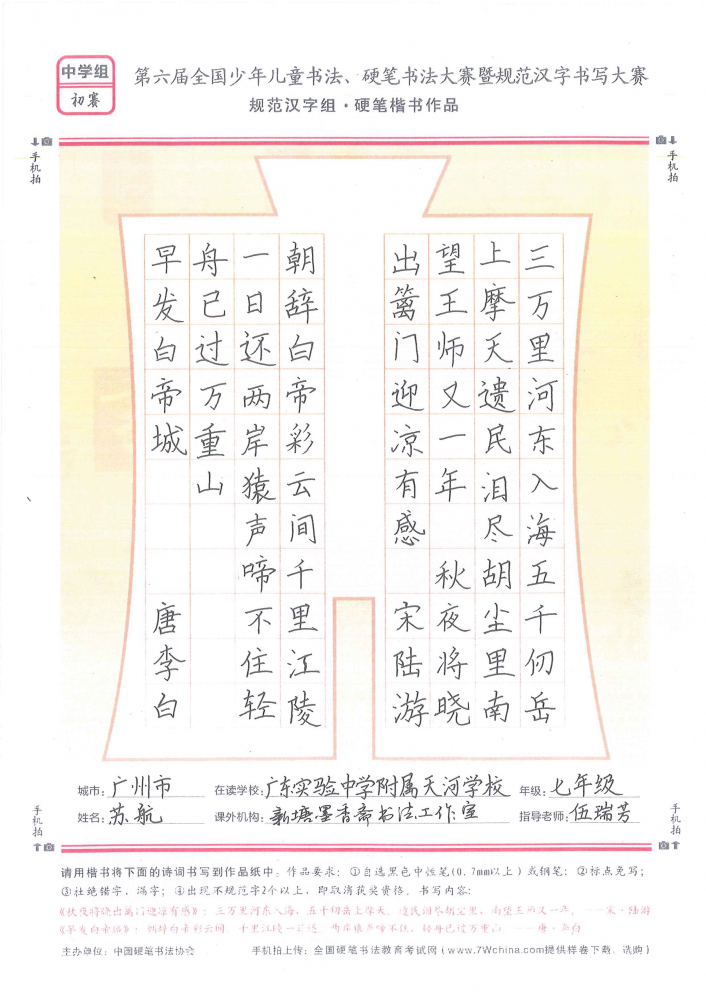 中学组
初赛
第六届全国少年儿童书法、硬笔书法大赛暨规范汉字书写大赛
规范汉字组·硬笔楷书作品
手机拍
手机拍
三万里河东入海五千仞岳
上摩天遗民泪尽胡尘里南
望王师又一年 秋夜将晓
出篱门迎凉有感 宋陆游
朝辞白帝彩云间千里江陵
一日还两岸猿声啼不住轻
舟已过万重山
早发白帝城 唐李白
城市：广州市 在读学校：广东实验中学附属天河学校 年级：七年级
姓名：苏航 课外机构：新塘墨香斋书法工作室 指导老师：伍瑞芳
手机拍
手机拍
请用楷书将下面的诗词书写到作品纸中。作品要求：①自选黑色中性笔(0.7mm以上)或钢笔；②标点免写；
③杜绝错字、漏字；④出现不规范字2个以上，即取消获奖资格。书写内容：
《秋夜将晓出篱门迎凉有感》：三万里河东入海，五千仞岳上摩天。遗民泪尽胡尘里，南望王师又一年。——宋·陆游
《早发白帝城》：朝辞白帝彩云间，千里江陵一日还。两岸猿声啼不住，轻舟已过万重山。——唐·李白
主办单位：中国硬笔书法协会 手机拍上传：全国硬笔书法教育考试网(www.7Wchina.com提供样卷下载、选购)